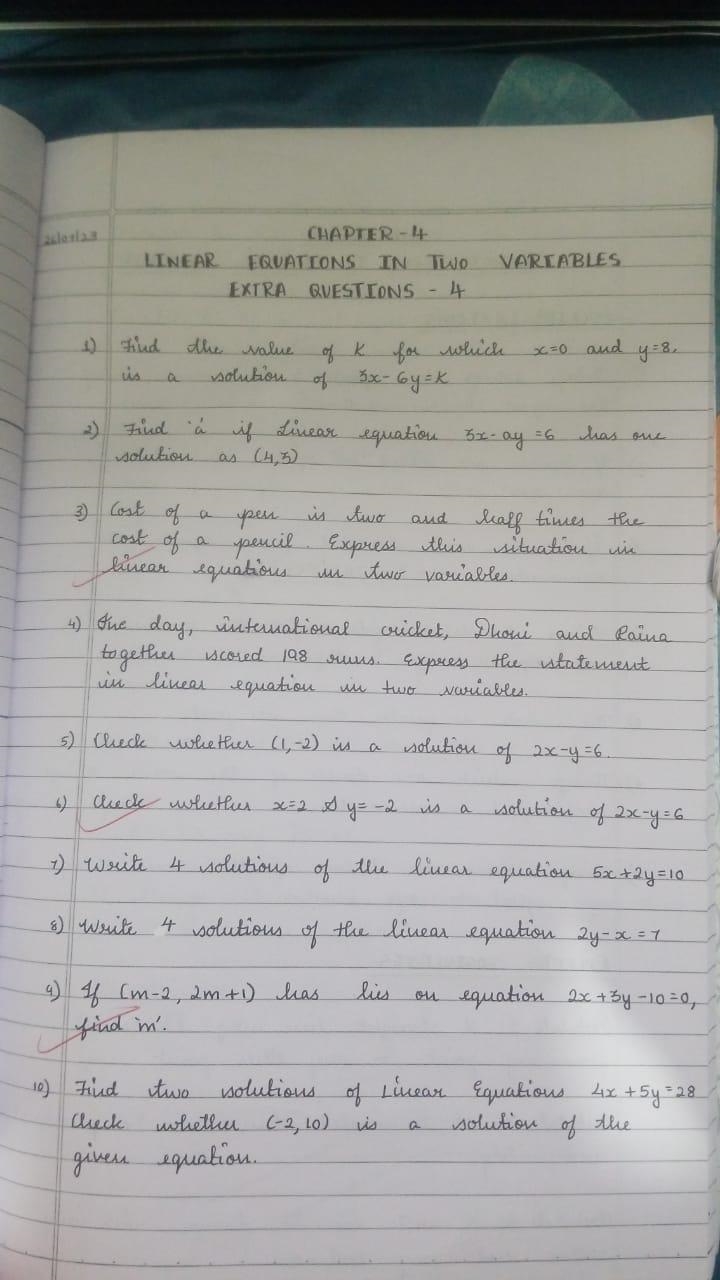 CHAPTER-4
LINEAR EQUATIONS IN TWO VARIABLES
EXTRA QUESTIONS - 4
1) Find the value of K for which x=0 and y=8.
is a solution of 3x-6y=K
2) Find 'a' if Linear equation 3x-ay=6 has one
solution as (4,3)
3) Cost of a pen is two and half times the
cost of a pencil. Express this situation in
linear equations in two variables.
4) One day, international cricket, Dhoni and Raina
together scored 198 runs. Express the statement
in linear equation in two variables.
5) Check whether (1,-2) is a solution of 2x-y=6.
6) Check whether x=2 & y= -2 is a solution of 2x-y=6
7) Write 4 solutions of the linear equation 5x+2y=10
8) Write 4 solutions of the linear equation 2y-x=7
9) If (m-2, 2m+1) has lies on equation 2x+3y-10=0,
find 'm'.
10) Find two solutions of Linear Equations 4x+5y=28
Check whether (-2,10) is a solution of the
given equation.